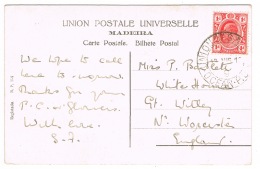 UNION POSTALE UNIVERSELLE
MADEIRA
Carte Postale. Bilhete Postal
We hope to call
here to-morrow.
Thanks for your
P.C. &
With love.
S.F.
Miss P. Bartlett
White House
Gt. Witley
Nr Worcester
England